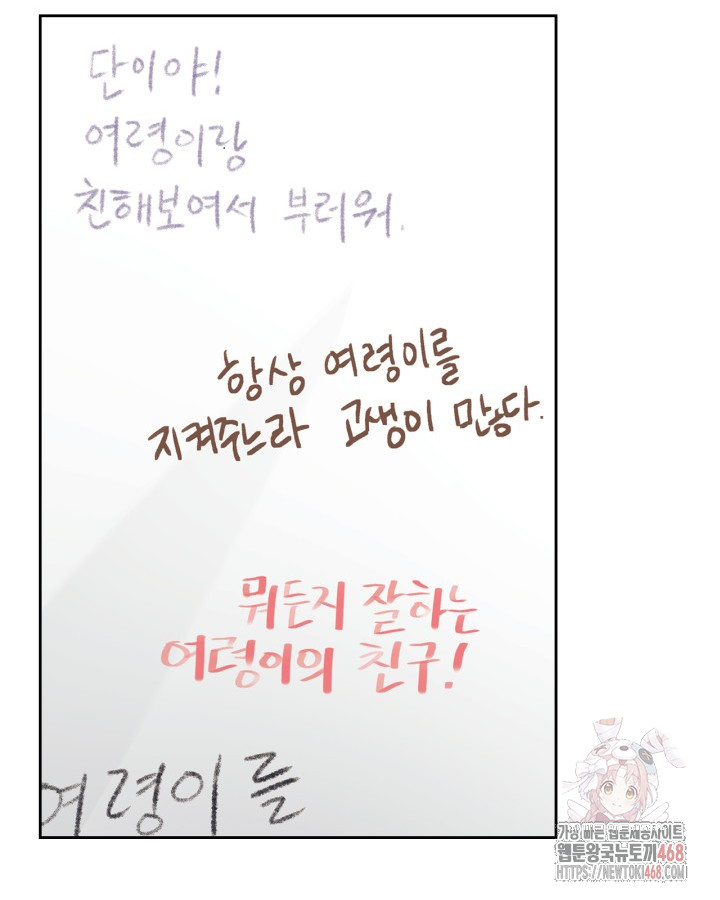 단이야!
여령이랑
친해보여서 부러워.
항상 여령이를
지켜주느라 고생이 만놓다.
뭐든지 잘하는
여령이의 친구!
여령이를
가장 빠른 웹툰제공사이트
웹툰왕국뉴토끼468
HTTPS://NEWTOKI468.COM